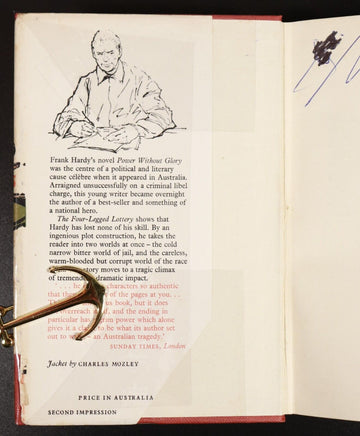 Frank Hardy's novel Power Without Glory
was the centre of a political and literary
cause célèbre when it appeared in Australia.
Arraigned unsuccessfully on a criminal libel
charge, this young writer became overnight
the author of a best-seller and something of
a national hero.
The Four-Legged Lottery shows that
Hardy has lost none of his skill. By an
ingenious plot construction, he takes the
reader into two worlds at once – the cold
narrow bitter world of jail, and the careless,
warm-blooded but corrupt world of the race
story moves to a tragic climax
of tremendous dramatic impact.
'. . . he characters so authentic
that the of the pages at you. . .
us book, but it does
overreach and the ending in
particular has grim power which alone
gives it a cl to be what its author set
out to – an Australian tragedy.'
SUNDAY TIMES, London
Jacket by CHARLES MOZLEY
PRICE IN AUSTRALIA
SECOND IMPRESSION